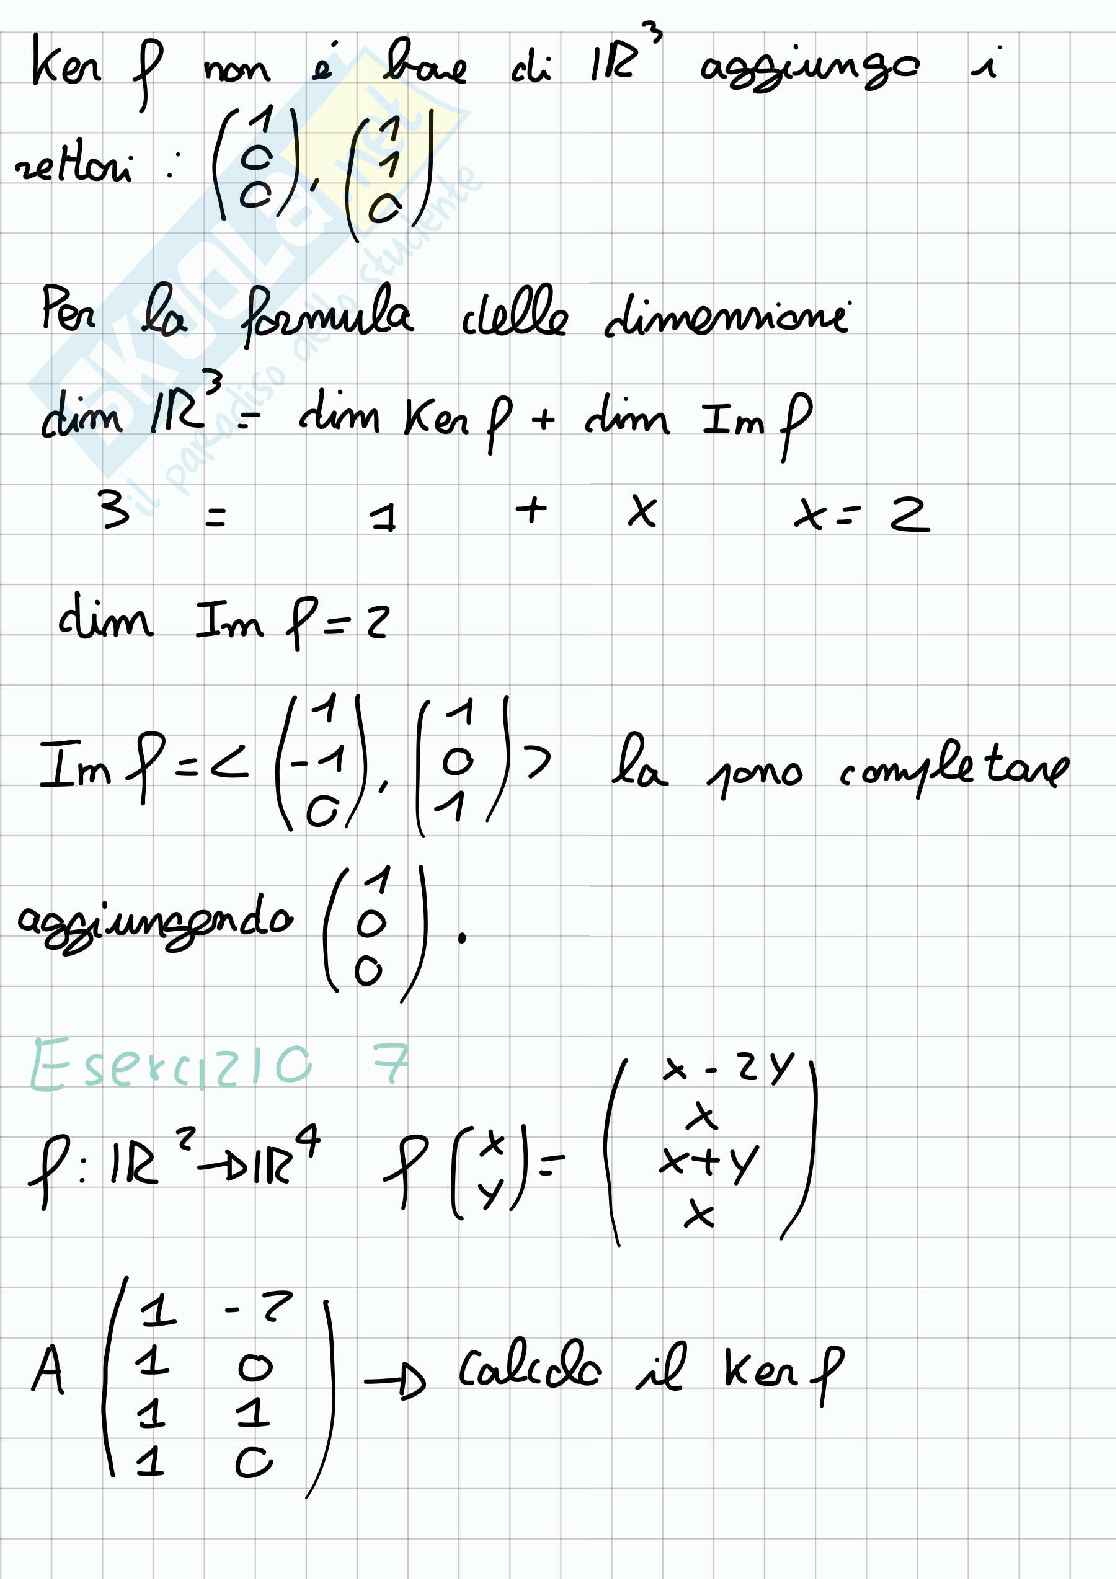 Ker f non é base di IR³ aggiungo i
vettori : (1 0 0), (1 1 0)
Per la formula delle dimensioni
dim IR³ = dim Ker f + dim Im f
3 = 1 + x x = 2
dim Im f = 2
Im f = < (1 -1 0), (1 0 1) > la posso completare
aggiungendo (1 0 0).
Esercizio 7
f: IR² → IR⁴ f (x y) = (x - 2y x x+y x)
A (1 -2 1 0 1 1 1 0) → Calcolo il Ker f
SKUOLA.net
il paradiso dello studente